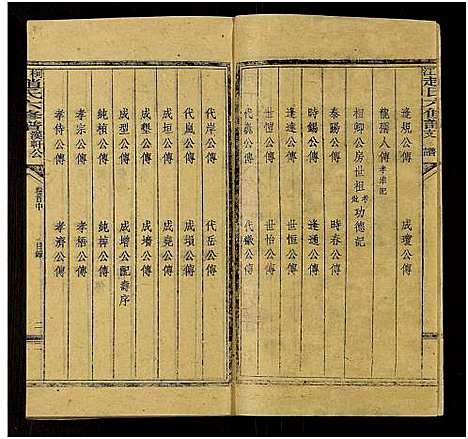 逢規公傳
成瓊公傳
龍彌人傳
相卿公房世祖功德記
泰賜公傳
時春公傳
時錫公傳
逢通公傳
逢達公傳
世恒公傳
世愷公傳
世怡公傳
代義公傳
代徽公傳
代岸公傳
代岳公傳
代嵐公傳
成垣公傳
成堯公傳
成墾公傳
成墻公傳
成型公傳
成增公配壽序
純楨公傳
純梓公傳
孝宗公傳
孝栢公傳
孝侍公傳
孝濟公傳
目錄
二